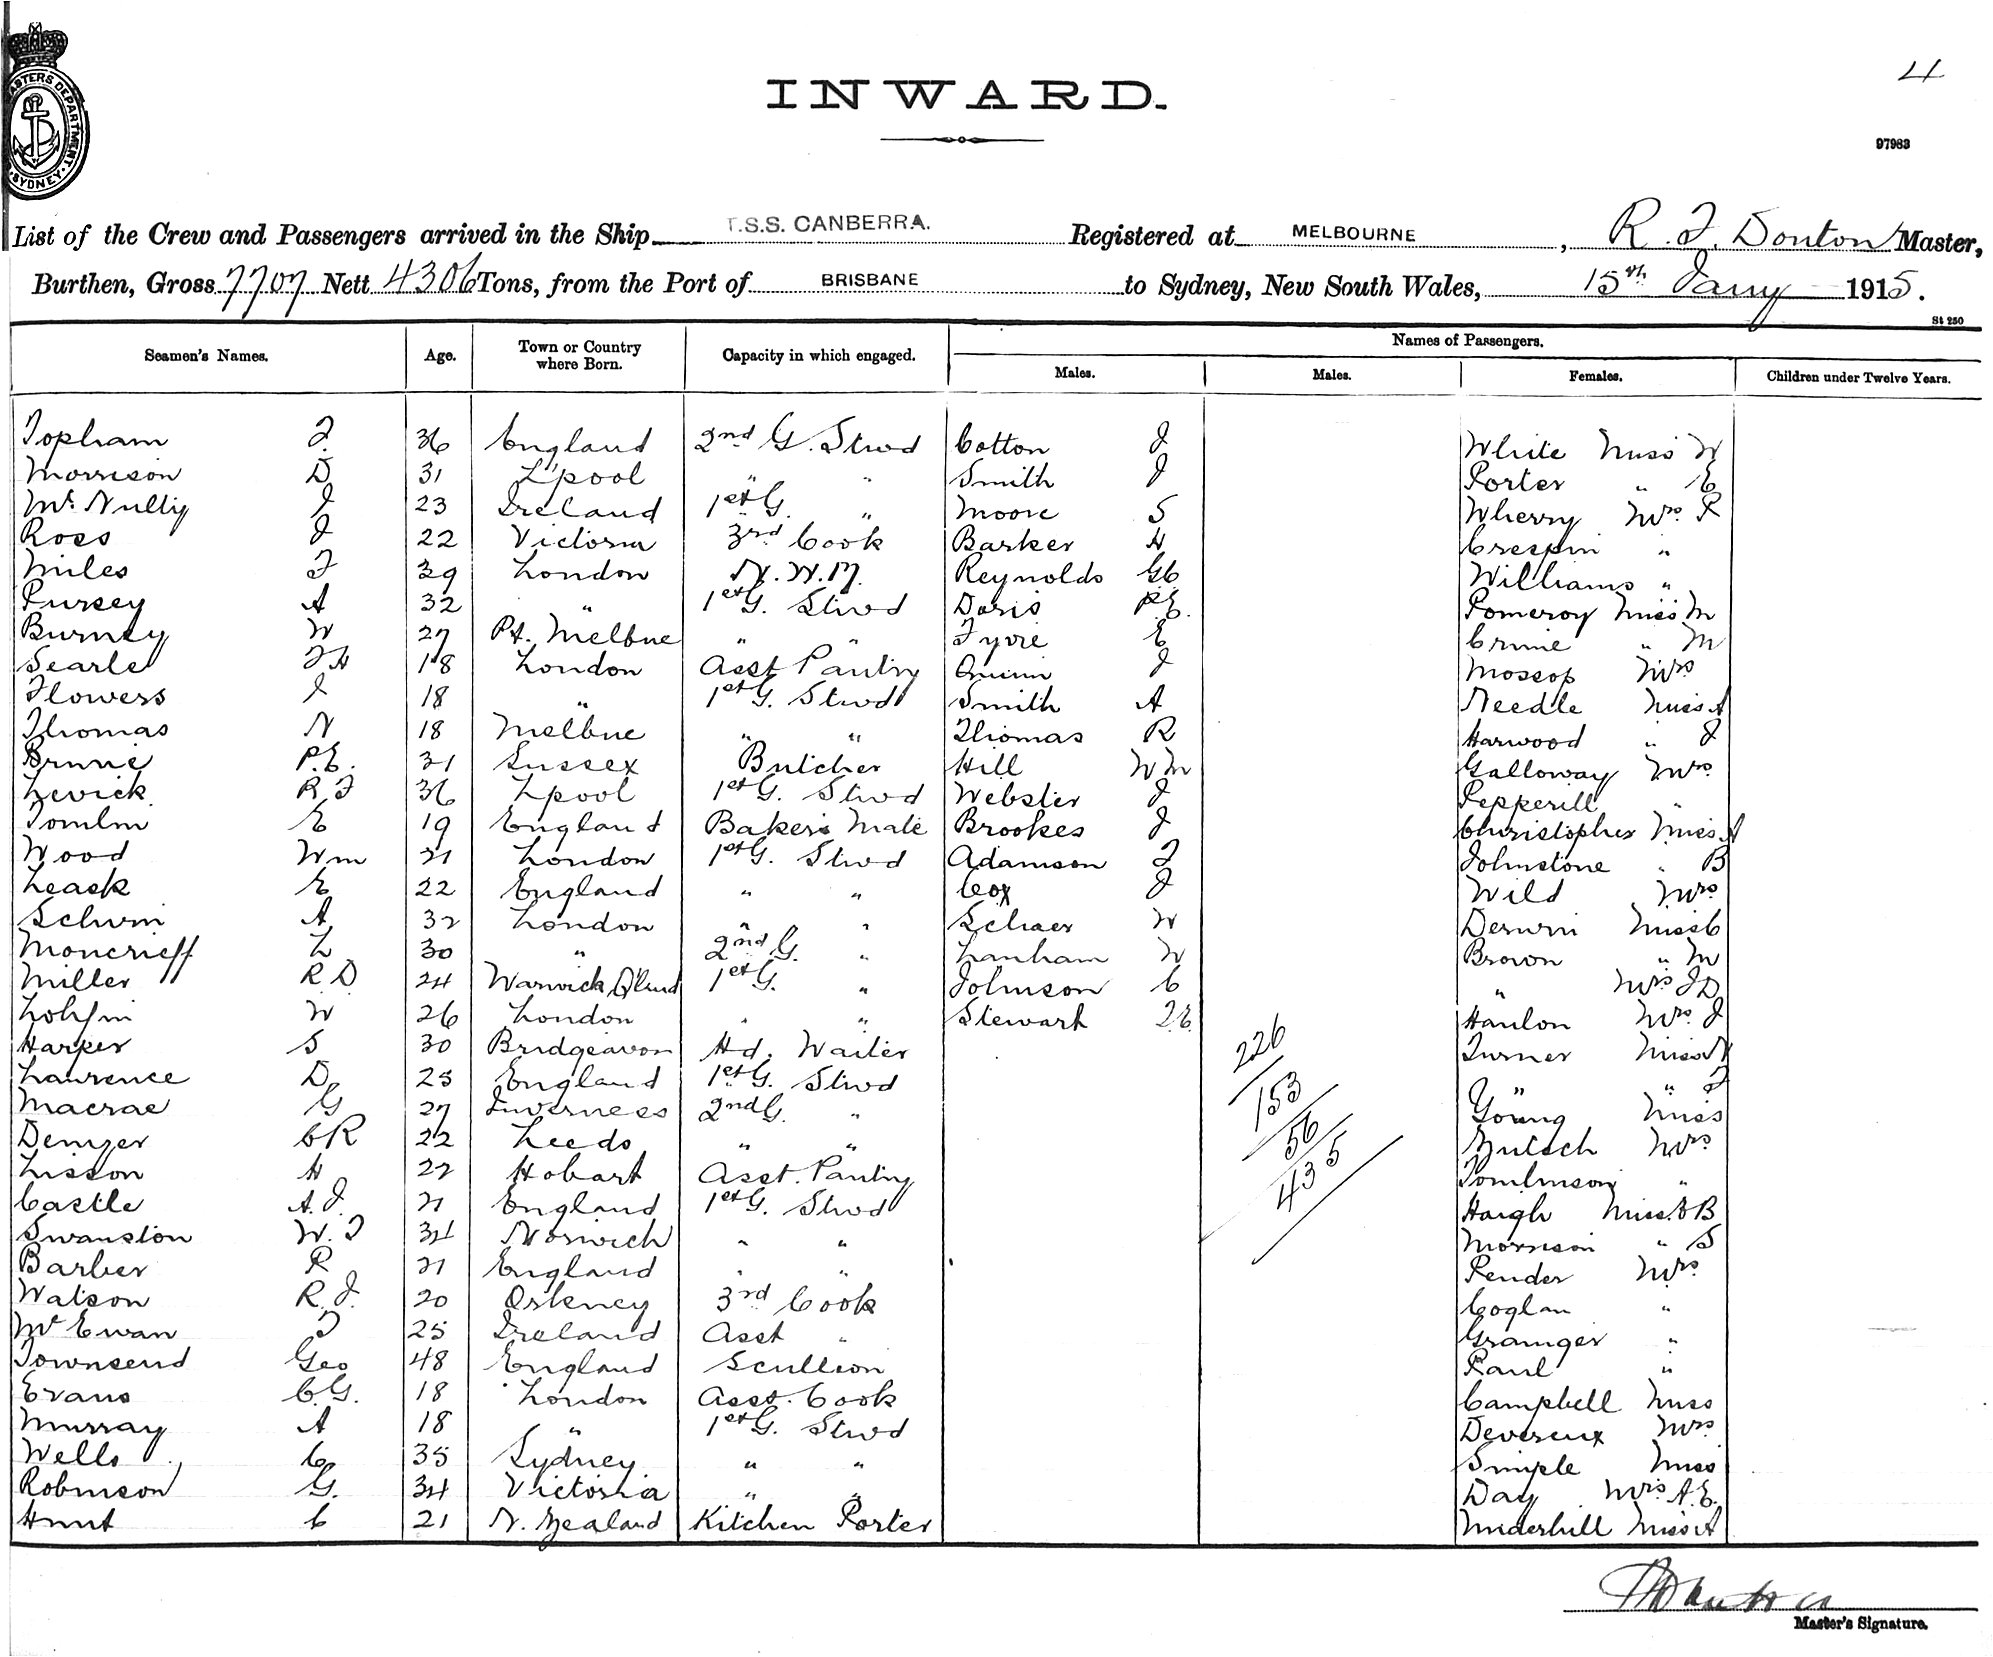 4
INWARD.
MASTERS DEPARTMENT
SYDNEY
97983
List of the Crew and Passengers arrived in the Ship T.S.S. CANBERRA. Registered at MELBOURNE, R. F. Donton Master,
Burthen, Gross 7707 Nett 4306 Tons, from the Port of BRISBANE to Sydney, New South Wales, 15th Jany 1915.
St 250
Seamen's Names. Age. Town or Country where Born. Capacity in which engaged. Names of Passengers.
Males. Males. Females. Children under Twelve Years.
Topham F. 36 England 2nd G. Stwd Cotton J White Miss W
Morrison D 31 L'pool " " Smith J Porter " E
McNulty J 23 Ireland 1st G. " Moore S Wherry Mrs R
Ross J 22 Victoria 3rd Cook Barker H Crespin "
Miles F 39 London N.W.M. Reynolds GC Williams "
Pursey A 32 " 1st G. Stwd Doris P.E. Pomeroy Miss M
Burney W 27 Pt. Melbne " " Fyvie E Crime " M
Searle FH 18 London Asst Pantry Quinn J Mossop Mrs
Flowers J 18 " 1st G. Stwd Smith A Needle Miss A
Thomas N 18 Melbne " " Thomas R Harwood " J
Brunie P.E. 31 Sussex Butcher Hill Wm Galloway Mrs
Levick R F 36 Lpool 1st G. Stwd Webster J Pepperill "
Tomlin E 19 England Baker's Mate Brookes J Christopher Miss A
Wood Wm 21 London 1st G. Stwd Adamson F Johnstone " B
Leask E 22 England " " Cox J Wild Mrs
Selwin A 32 London " " Schaer W Derwin Miss C
Moncrieff L 30 " 2nd G. " Lanham W Brown " M
Miller R.D 24 Warwick Qlnd 1st G. " Johnson C " Mrs J D
W 26 London " " Stewart F.E. Hanlon Mrs J
Harper S 30 Hd. Waiter Turner Miss N
Lawrence D 25 England 1st G. Stwd " " J
Macrae G 27 Inverness 2nd G. " Young Miss
Denyer CR 22 Leeds " " Zutsch Mrs
Lisson H 22 Hobart Asst. Pantry Tomlinson "
Castle A.J. 21 England 1st G. Stwd Haigh Miss B
Swanston W.F 34 Norwich " " Morrison " S
Barber R 21 England " " Pender Mrs
Watson R.J. 20 Orkney 3rd Cook Coglan "
McEwan J 25 Ireland Asst " Grainger "
Townsend Geo 48 England Scullion Paul "
Evans C.G. 18 London Asst. Cook Campbell Miss
Murray A 18 " 1st G. Stwd Devereux Mrs
Wells C 35 Sydney " " Simple Miss
Robinson G. 34 Victoria " " Day Mrs A.E.
Hunt C 21 N. Zealand Kitchen Porter Underhill Miss A
226
153
56
435
Master's Signature.